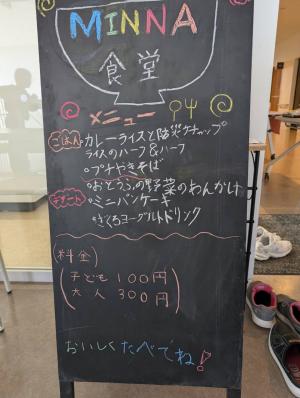 MINNA
食堂
メニュー
ごはん ○カレーライスと防災ケチャップ
ライスのハーフ&ハーフ
○プチやきそば
○おとうふの野菜のあんかけ
デザート ○ミニパンケーキ
○ざくろヨーグルトドリンク
(料金)
子ども 100円
大人 300円
おいしくたべてね!